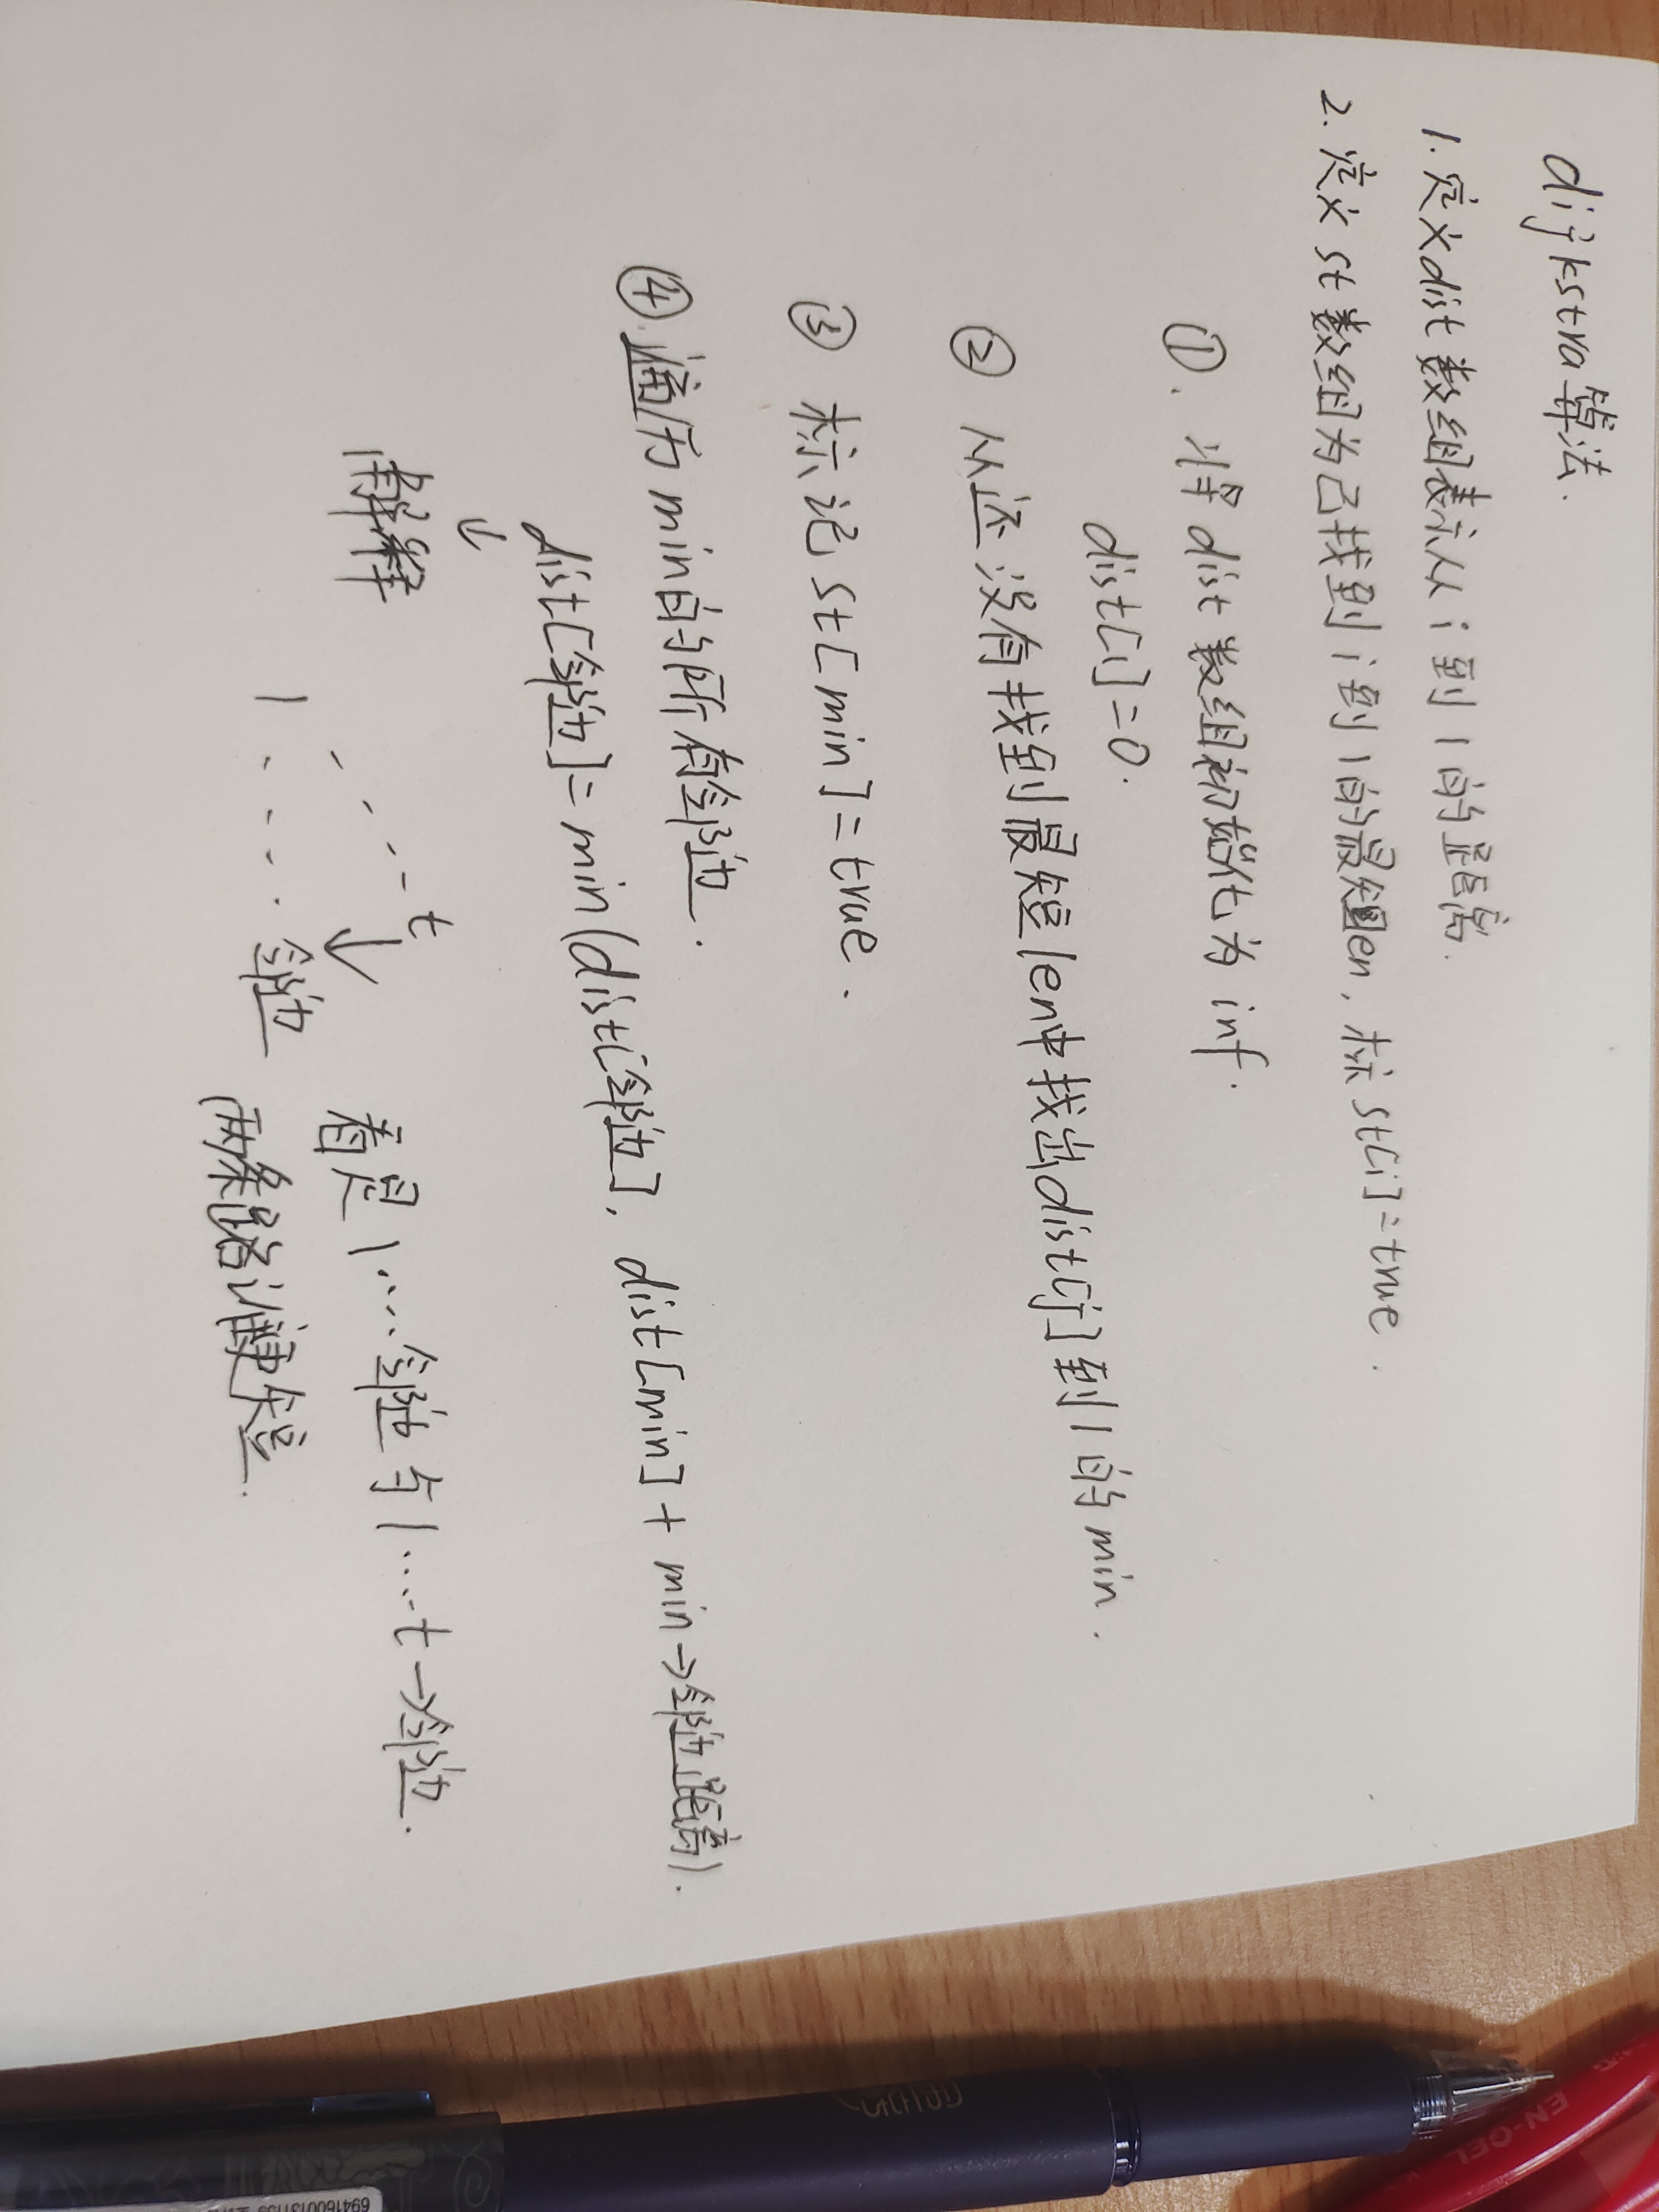 dijkstra算法.
1. 定义dist数组表示从i到1的距离.
2. 定义st数组为已找到i到1的最短len, 标示st[i]=true.
①. 将dist数组初始化为inf.
dist[1]=0.
② 从还没有找到最短len中找出dist[j]到1的min.
③ 标记st[min]=true.
④. 遍历min的所有邻边.
dist[邻边]=min(dist[邻边], dist[min]+min→邻边距离).
↓
解释
t
1 .... 邻边
看是1....邻边与1....t→邻边.
两条路谁更短.
EN-GEL
6941600131139